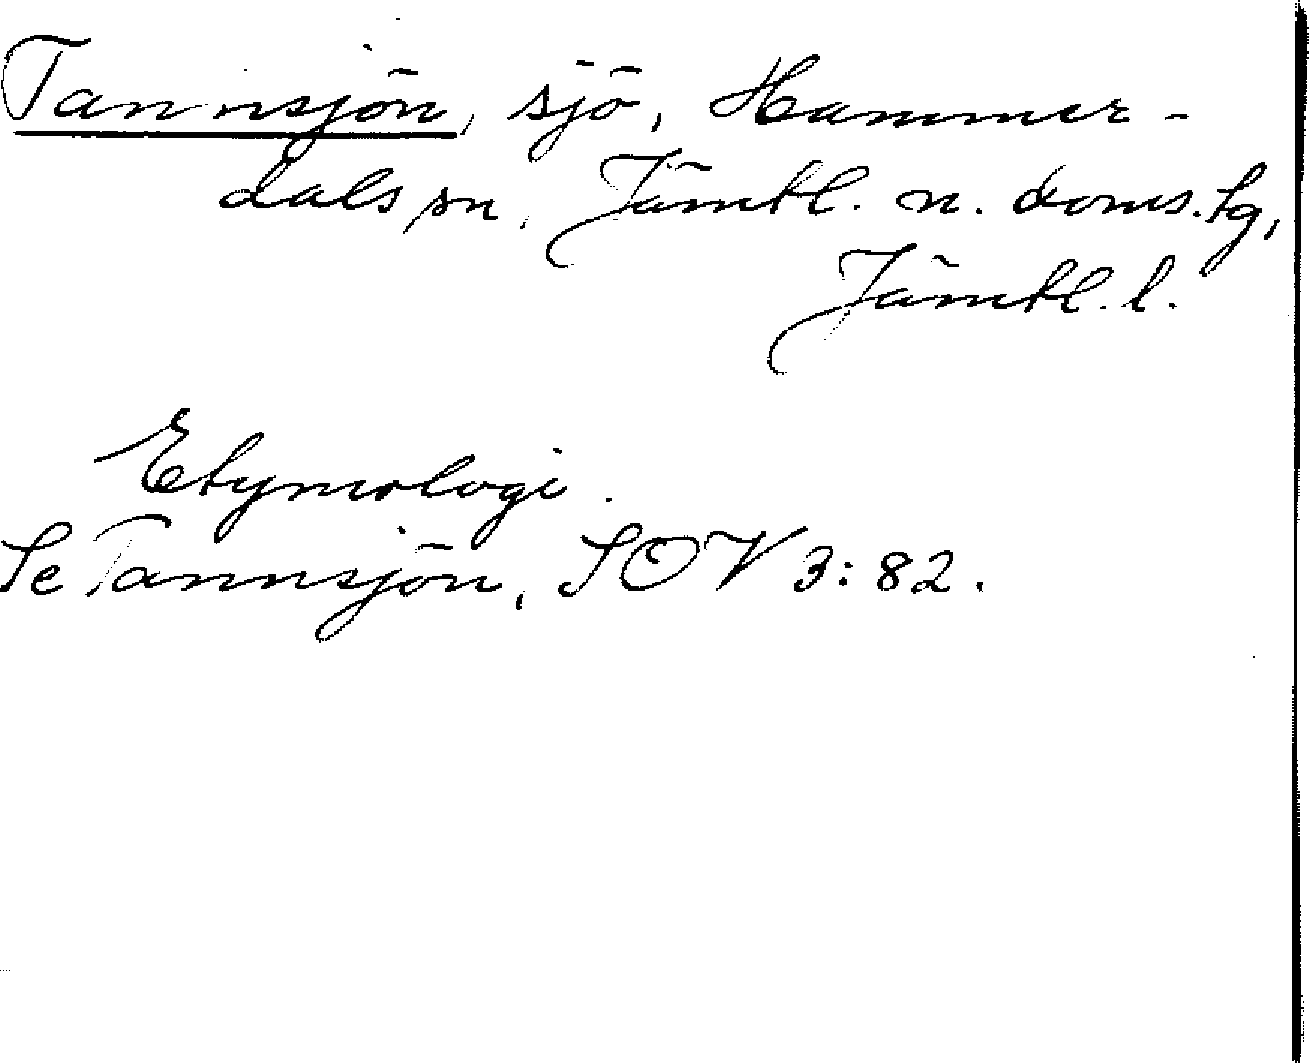 Tannsjön, sjö, Hammer-
dals sn, Jämtl. n. doms.tg,
Jämtl. l.
Etymologi.
Se Tannsjön, SOV 3:82.